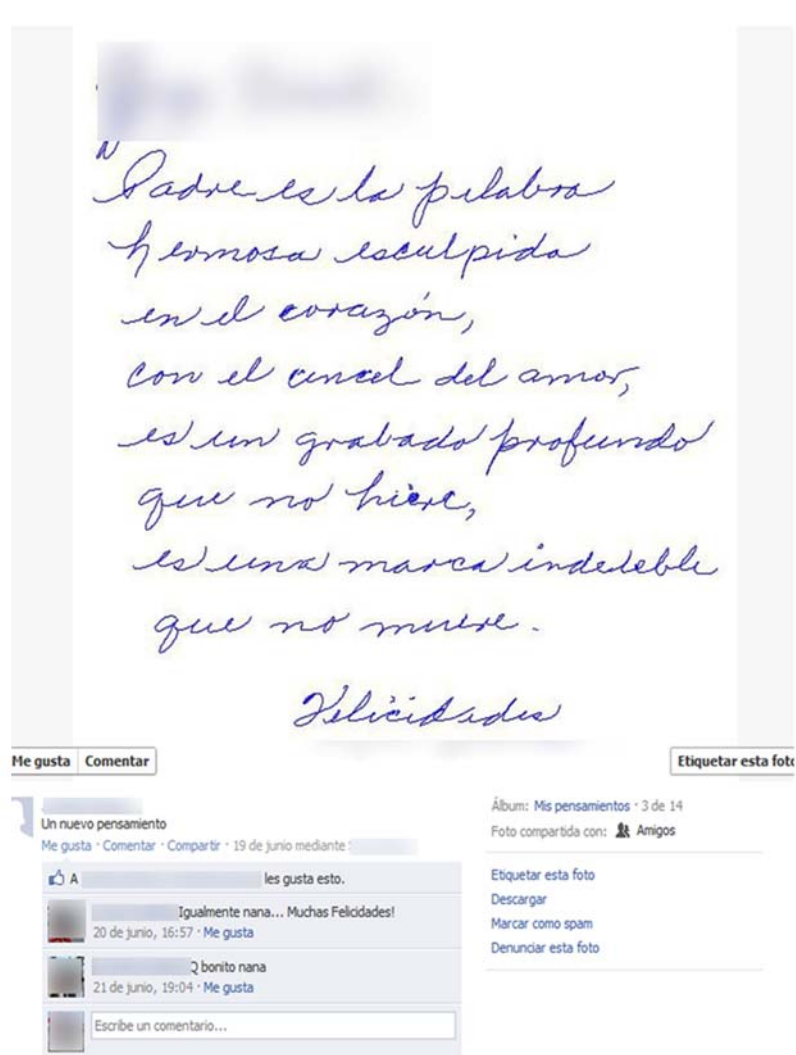 "Padre es la palabra
hermosa esculpida
en el corazón,
con el cincel del amor,
es un grabado profundo
que no hiere,
es una marca indeleble
que no muere.
Felicidades
Me gusta Comentar
Etiquetar esta foto
Un nuevo pensamiento
Me gusta · Comentar · Compartir · 19 de junio mediante
A les gusta esto.
Igualmente nana... Muchas Felicidades!
20 de junio, 16:57 · Me gusta
Q bonito nana
21 de junio, 19:04 · Me gusta
Escribe un comentario...
Álbum: Mis pensamientos · 3 de 14
Foto compartida con: Amigos
Etiquetar esta foto
Descargar
Marcar como spam
Denunciar esta foto